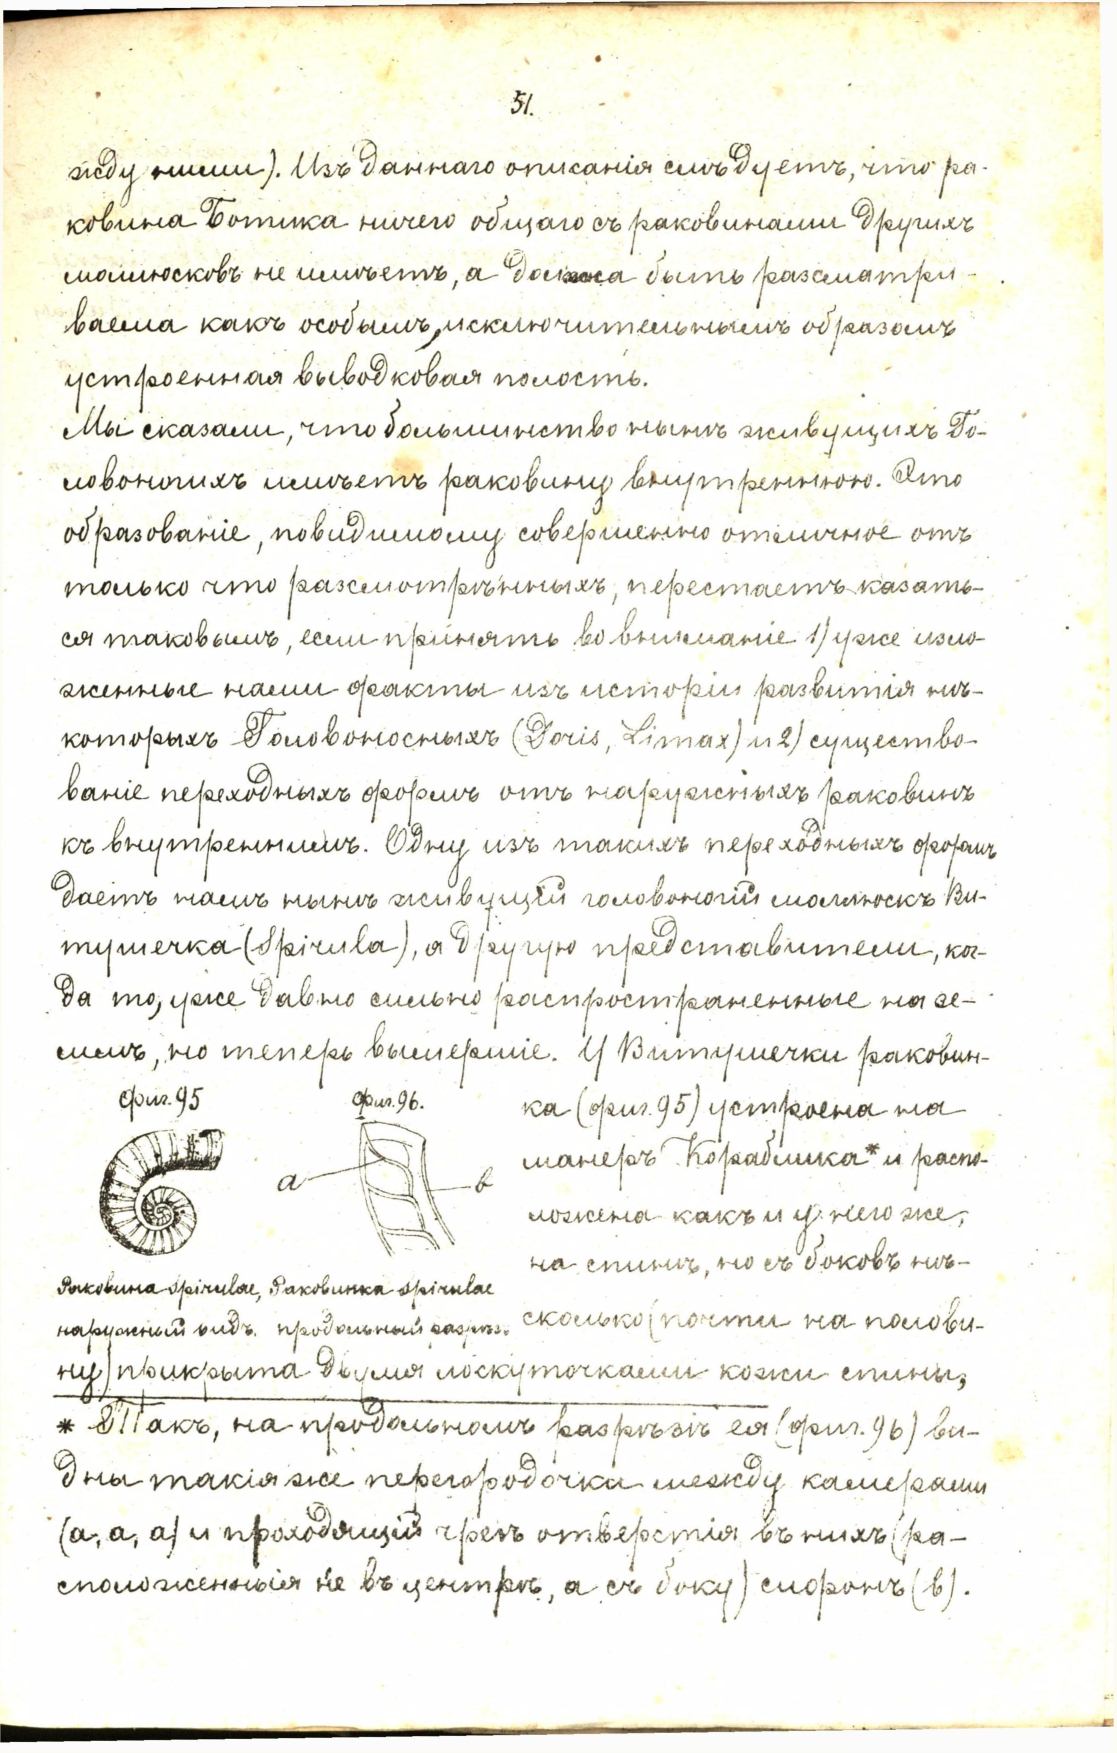 51.
жду ними). Изъ даннаго описанія слѣдуетъ, что ра-
ковина Ботика ничего общаго съ раковинами другихъ
моллюсковъ не имѣетъ, а должна быть разсматри-
ваема какъ особымъ, исключительнымъ образомъ
устроенная выводковая полость.
Мы сказали, что большинство нынѣ живущихъ Го-
ловоногихъ имѣетъ раковину внутреннюю. Это
образованіе, повидимому совершенно отличное отъ
только что разсмотрѣнныхъ, перестаетъ казать-
ся таковымъ, если принять во вниманіе 1) уже изло-
женные нами факты изъ исторіи развитія нѣ-
которыхъ Головоносныхъ (Doris, Limax) и 2) существо-
ваніе переходныхъ формъ отъ наружныхъ раковинъ
къ внутреннимъ. Одну изъ такихъ переходныхъ формъ
даетъ намъ нынѣ живущій головоногій моллюскъ Ви-
тушечка (Spirula), а другую представители, ког-
да то, уже давно сильно распространенные на зе-
млѣ, но теперь вымершіе. У Витушечки раковин-
фиг. 95
фиг. 96.
a
в
Раковина Spirulae,
наружный видъ.
Раковинка Spirulae
продольный разрѣз.
ка (фиг. 95) устроена на
манеръ Кораблика* и распо-
ложена какъ и у него же,
на спинѣ, но съ боковъ нѣ-
сколько (почти на полови-
ну) прикрыта двумя лоскуточками кожи спины,
* Такъ, на продольномъ разрѣзѣ ея (фиг. 96) ви-
дны такія же перегородочки между камерами
(а, а, а) и проходящій чрезъ отверстія въ нихъ (ра-
сположенныя не въ центрѣ, а съ боку) сифонъ (в).